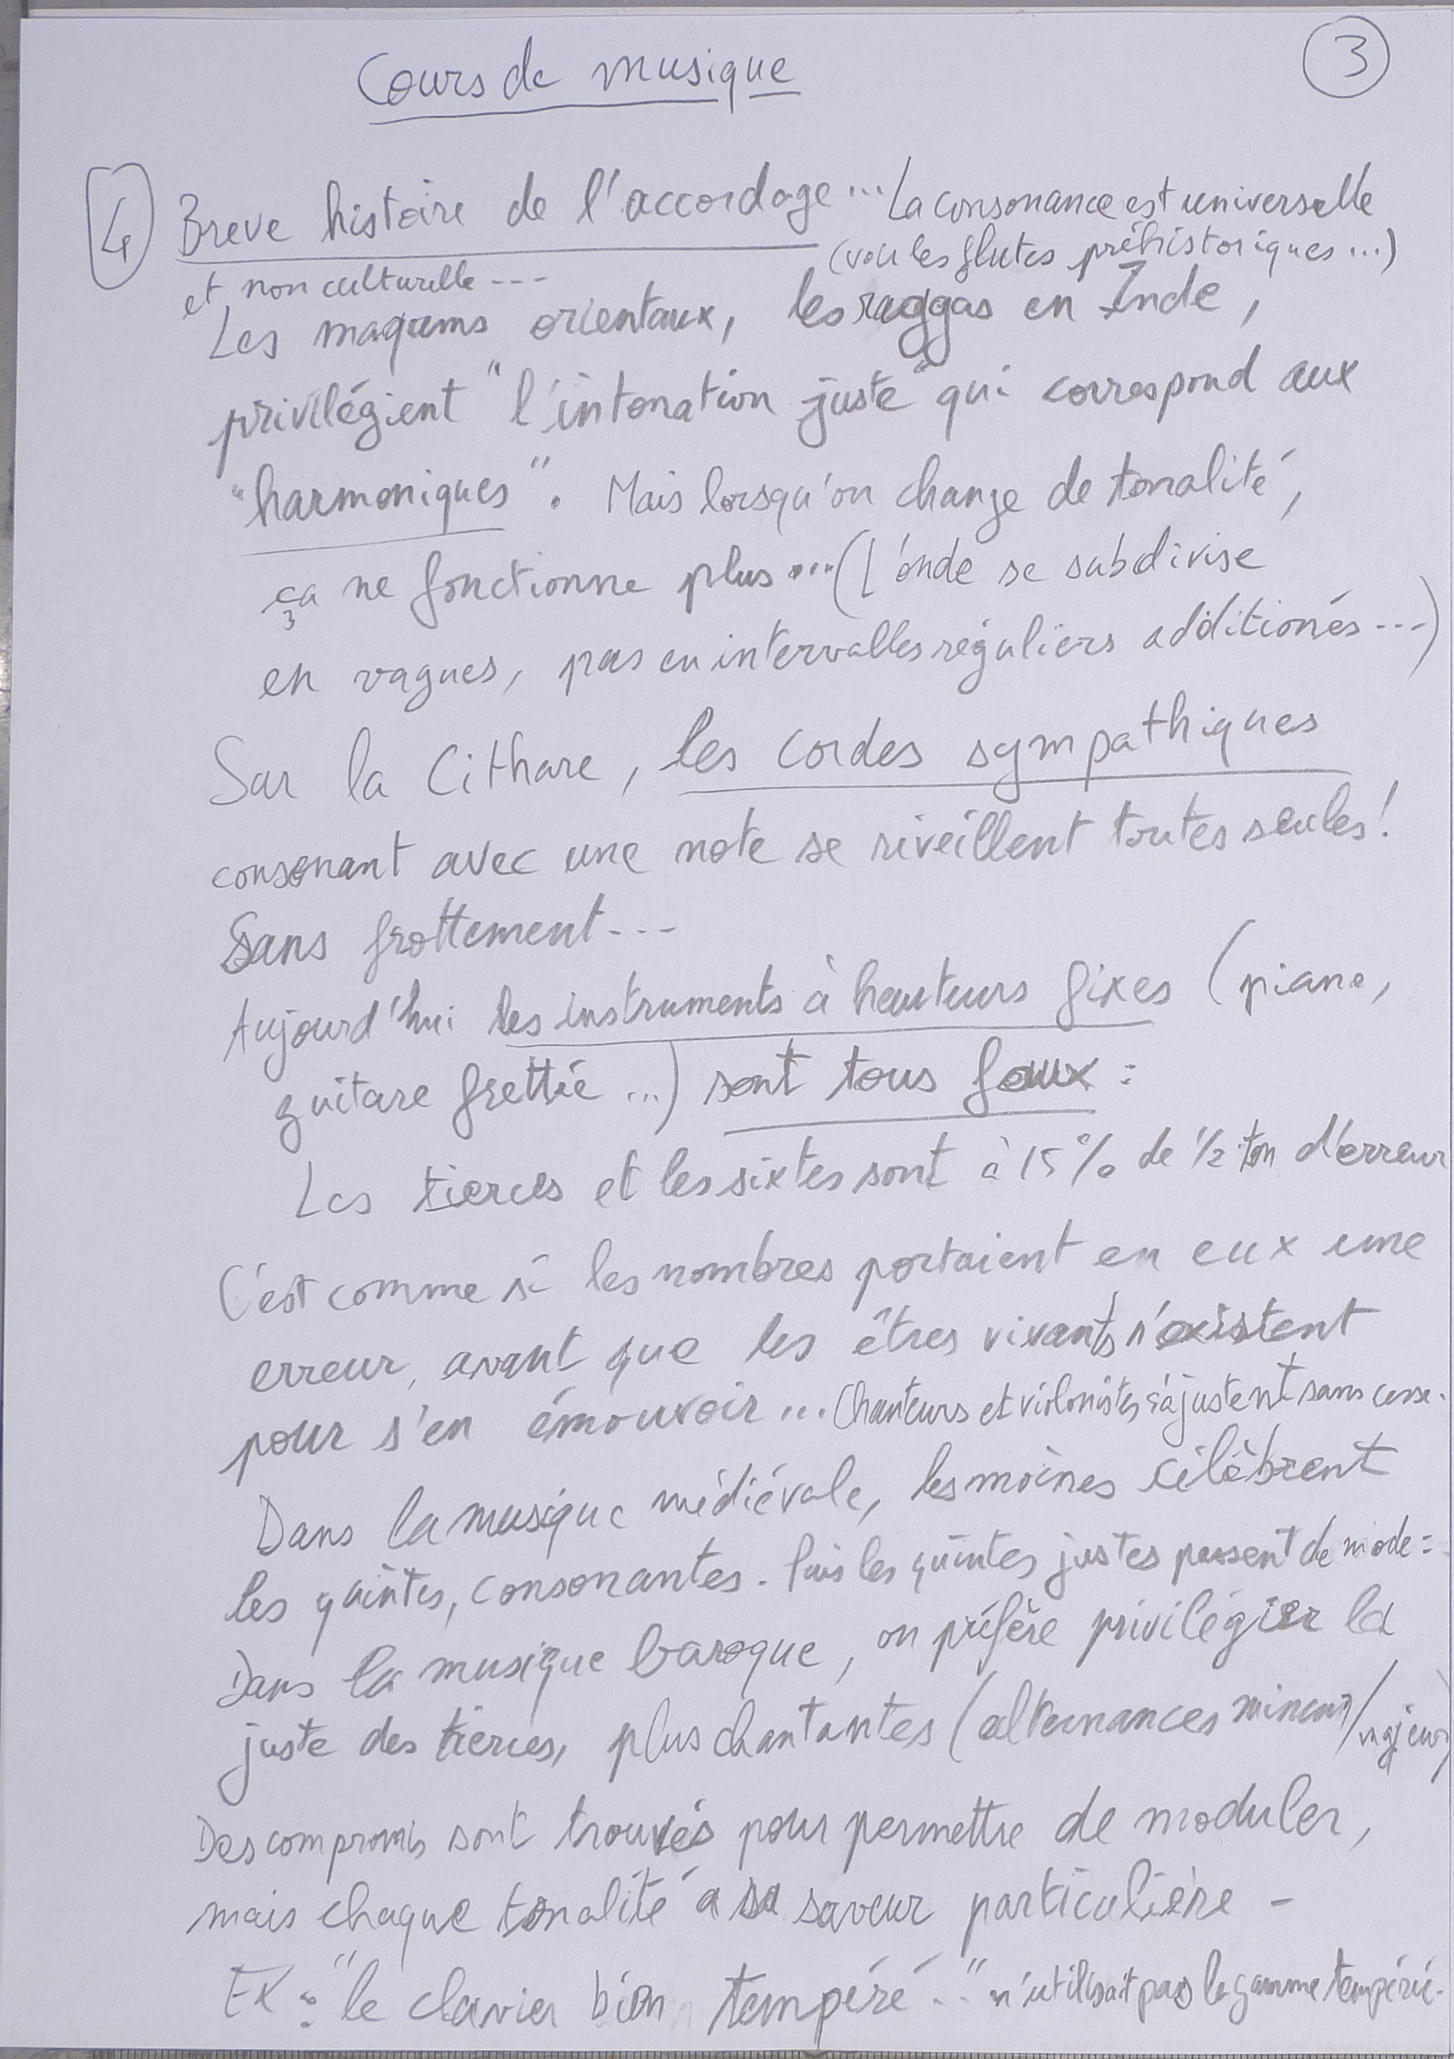 Cours de musique
3
4 Breve histoire de l'accordage... La consonance est universelle
(voir les flutes préhistoriques...)
et non culturelle ---
Les maqams orientaux, les raggas en Inde,
privilégient "l'intonation juste" qui correspond aux
"harmoniques". Mais lorsqu'on change de tonalité,
ça ne fonctionne plus... (L'onde se subdivise
en vagues, pas en intervalles réguliers additionés ---)
Sur la Cithare, les cordes sympathiques
consonant avec une note se réveillent toutes seules!
Sans frottement ---
Aujourd'hui les instruments à hauteurs fixes (piano,
guitare frettée ...) sont tous faux :
Les tierces et les sixtes sont à 15% de 1/2 ton d'erreur
C'est comme si les nombres portaient en eux une
erreur, avant que les êtres vivants n'existent
pour s'en émouvoir... Chanteurs et violonistes s'ajustent sans cesse.
Dans la musique médiévale, les moines célèbrent
les quintes, consonantes. Puis les quintes justes passent de mode :
Dans la musique baroque, on préfère privilégier la
juste des tierces, plus chantantes (alternances mineur/majeur)
Des compromis sont trouvés pour permettre de moduler,
mais chaque tonalité a sa saveur particulière -
EX : "le clavier bien tempéré.." n'utilisait pas la gamme tempérée.